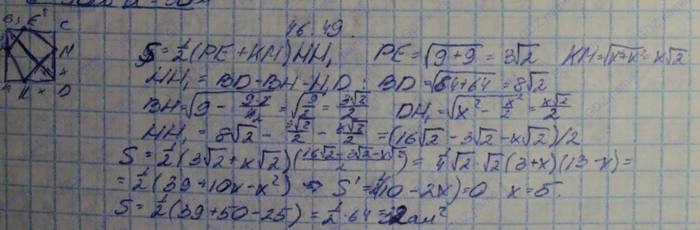 46.49.
B 3 E C
S = 1/2 (PE + KM) HH₁ PE = √(9+9) = 3√2 KM = √(x²+x²) = x√2
M
HH₁ = BD - BH - H₁D ; BD = √(64+64) = 8√2
A K x D
BH = √(9 - 9·2/4) = √(9/2) = 3√2/2 DH₁ = √(x² - x²/2) = x√2/2
HH₁ = 8√2 - 3√2/2 - x√2/2 = (16√2 - 3√2 - x√2)/2
S = 1/2 (3√2 + x√2)((16√2 - 3√2 - x√2)/2) = 1/4 √2·√2 (3+x)(13-x) =
= 1/2 (39 + 10x - x²) S' = 1/2(10 - 2x) = 0 x = 5.
S = 1/2 (39 + 50 - 25) = 1/2 · 64 = 32 см²